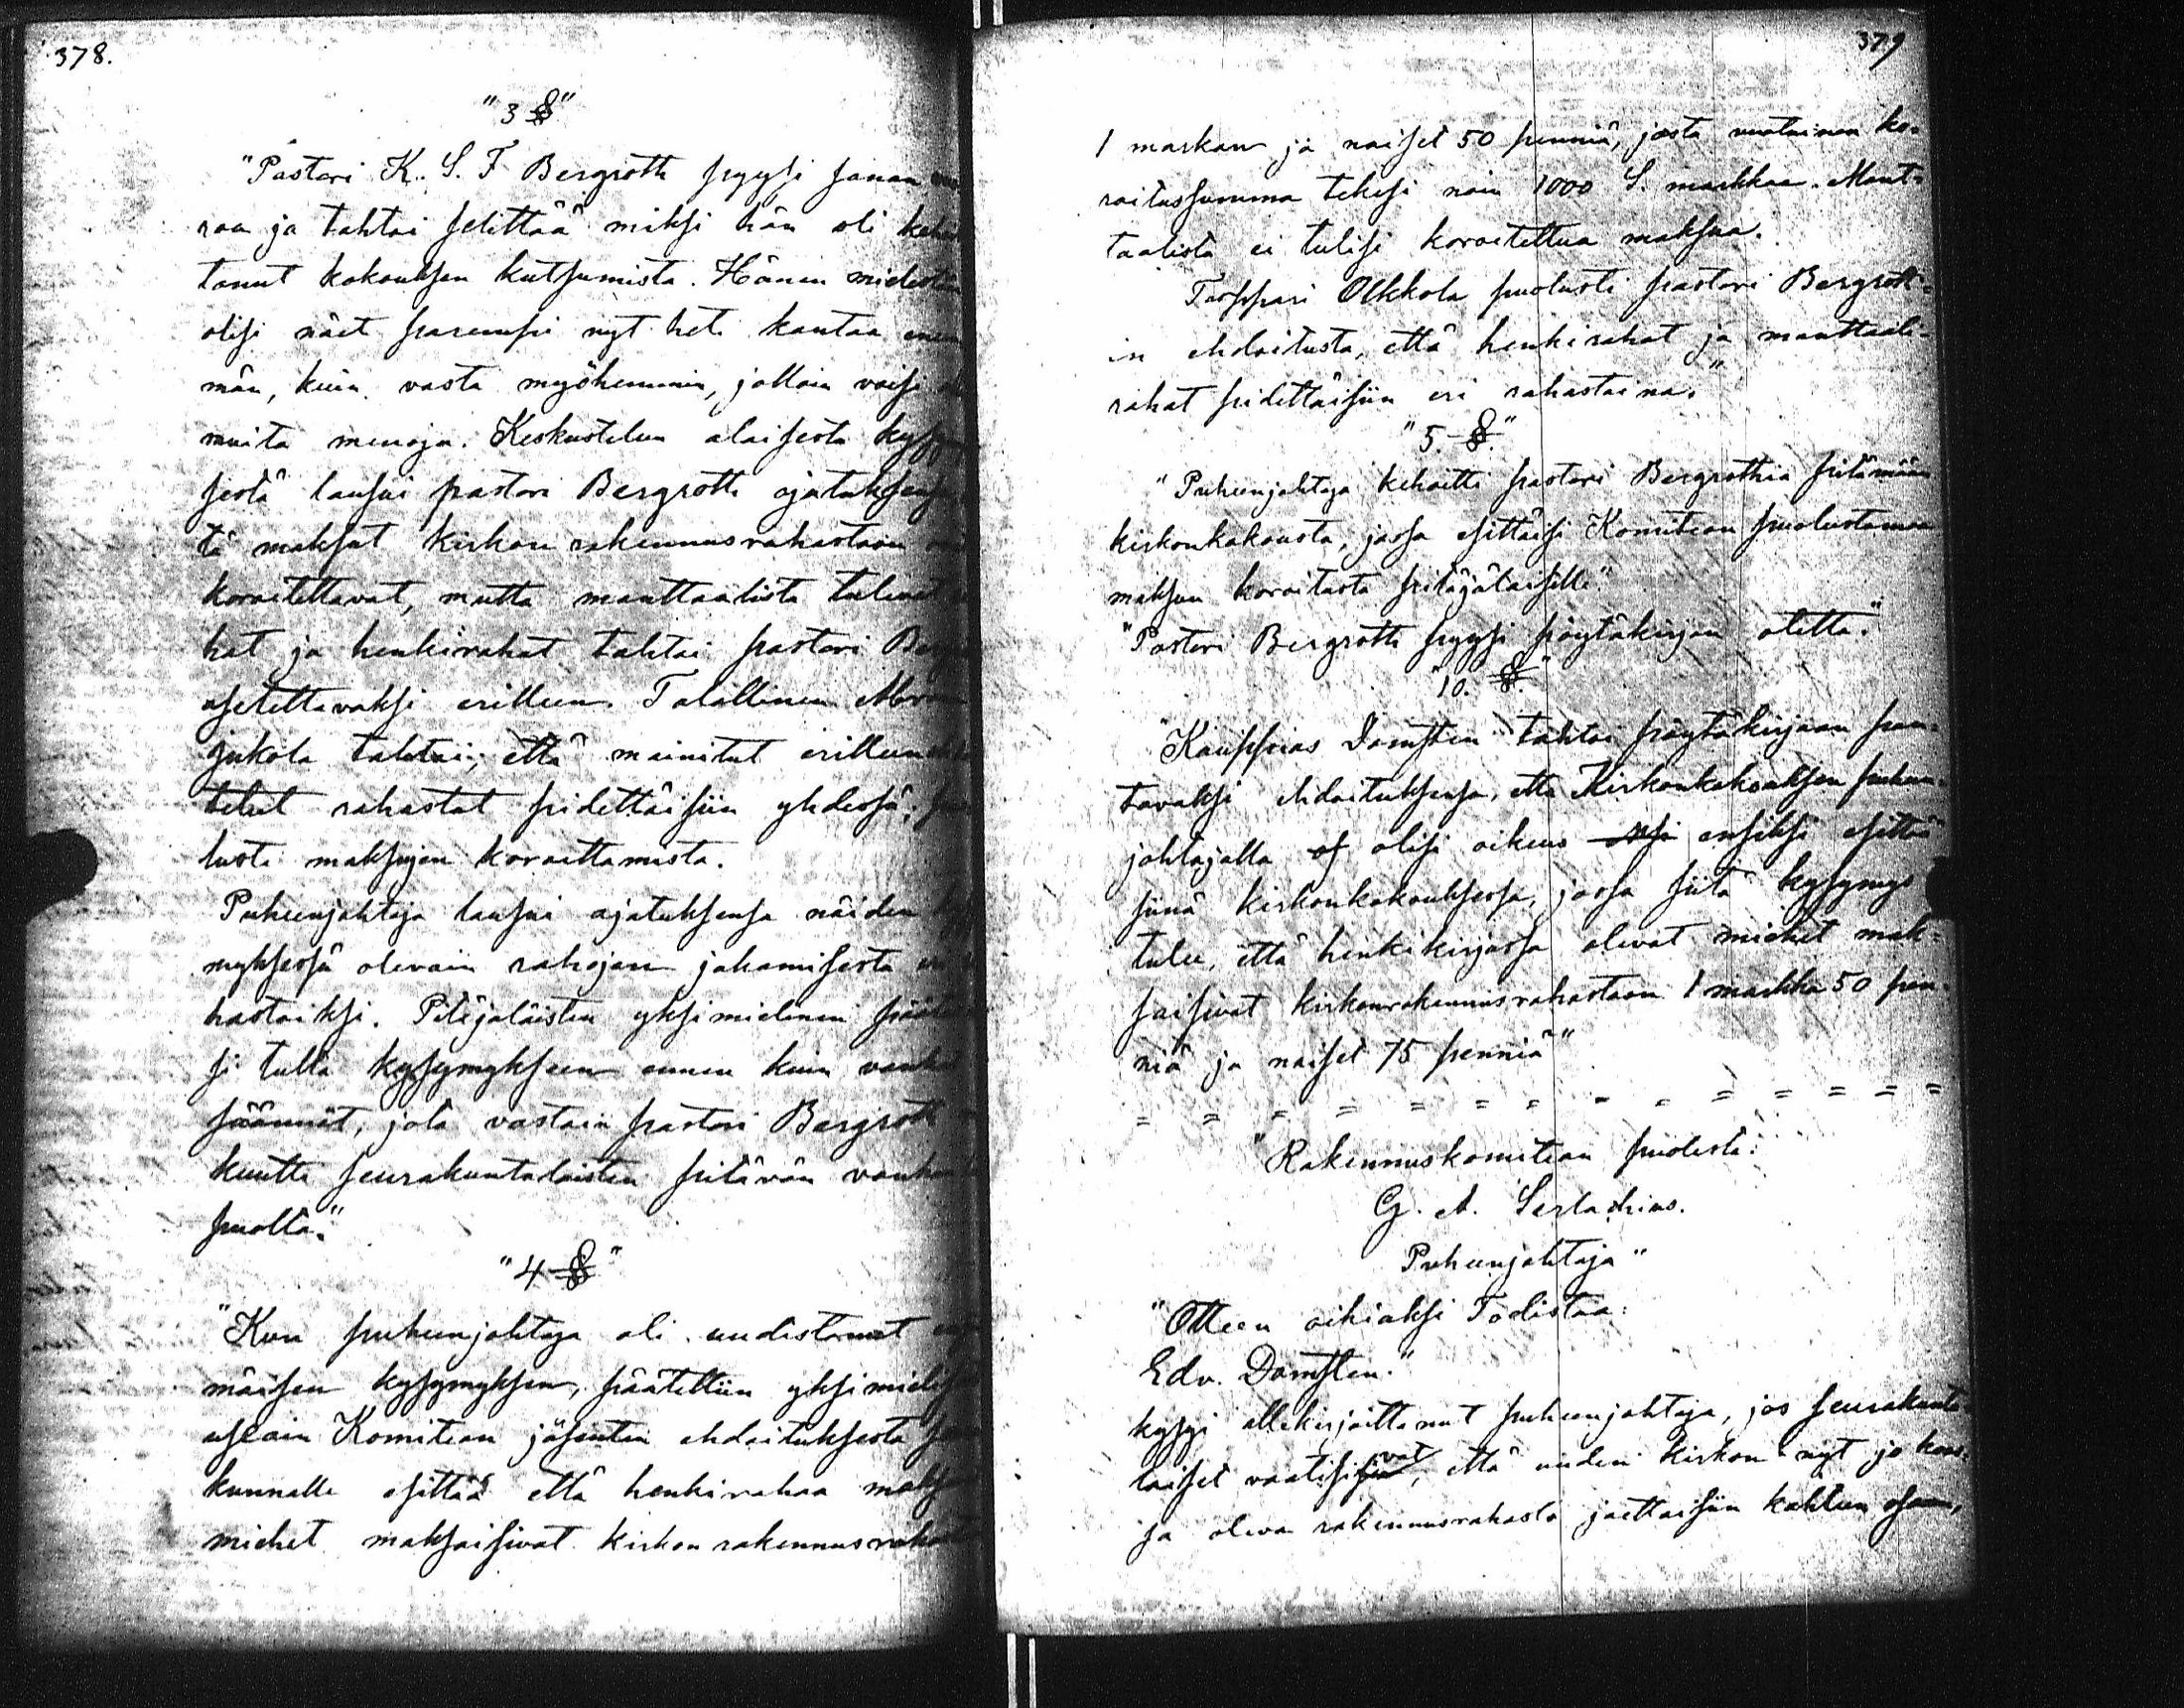 378.
"3 §"
"Pastori K. S. F Bergroth pyysi sanan
roa ja tahtoi selittää miksi hän oli
tanut kokouksen kutsumista. Hänen mielestän
olisi näet parempi nyt heti kantaa
män, kuin vasta myöhemmin, jolloin voisi
muita menoja. Keskustelun alaisesta kysy
sestä lausui pastori Bergroth ajatuksens
tä maksut kirkon rakennusrahastoon
koroitettavat, mutta manttaalista tulevat
hat ja henkirahat tahtoi pastori Be
asetettavaksi erilleen. Talollinen
Jukola tahtoi, että mainitut erilleen
telut rahastot pidettäisiin yhdessä,
lusti maksujen koroittamista.
Puheenjohtaja lausui ajatuksensa näiden
myksessä olevain rahojen jakamisesta
hastoiksi. Pitäjäläisten yksimielinen pää
si tulla kysymykseen ennen kuin vanha
säännöt, jota vastain pastori Bergroth
kuutta seurakuntalaisten pitävän vanh
puolta."
"4 §"
"Kun puheenjohtaja oli uudistanut
mäisen kysymyksen, päätettiin yksimielis
useain Komitean jäsenten ehdoituksesta
kunnalle esittää että henkirahaa maks
miehet maksaisivat kirkon rakennusraha
379
1 markan ja naiset 50 penniä, josta vuotuinen ko=
roitussumma tekisi noin 1000 S. markkaa. Mant=
taalista ei tulisi koroitettua maksua.
Torppari Olkkola puolusti pastori Bergroth=
in ehdoitusta, että henkirahat ja manttaali=
rahat pidettäisiin eri rahastoina."
"5. §."
"Puheenjohtaja kehoitti pastori Bergrothia pitämään
kirkonkokousta, jossa esittäisi Komitean puolustaman
maksun koroitusta pitäjäläisille"
"Pastori Bergroth pyysi pöytäkirjan otetta."
"10. §."
"Kauppias Damsten tahtoi pöytäkirjaan pan=
tavaksi ehdoituksensa, että Kirkonkokouksen puheen=
johtajalla olisi oikeus ensiksi esittä
siinä kirkonkokouksessa, jossa siitä kysymys
tulee, että henkikirjassa olevat miehet mak=
saisivat kirkonrakennusrahastoon 1 markka 50 pen=
niä ja naiset 75 penniä"
= = = = = = = = = = = = =
"Rakennuskomitean puolesta:
G. A. Serlachius.
Puheenjohtaja"
"Otteen oikiaksi Todistaa:
Edv. Damsten."
kysyi allekirjoittanut puheenjohtaja, jos seurakunta
laiset vaatisivat, että uuden kirkon nyt jo koos=
sa oleva rakennusrahasto jaettaisiin kahteen osaan,